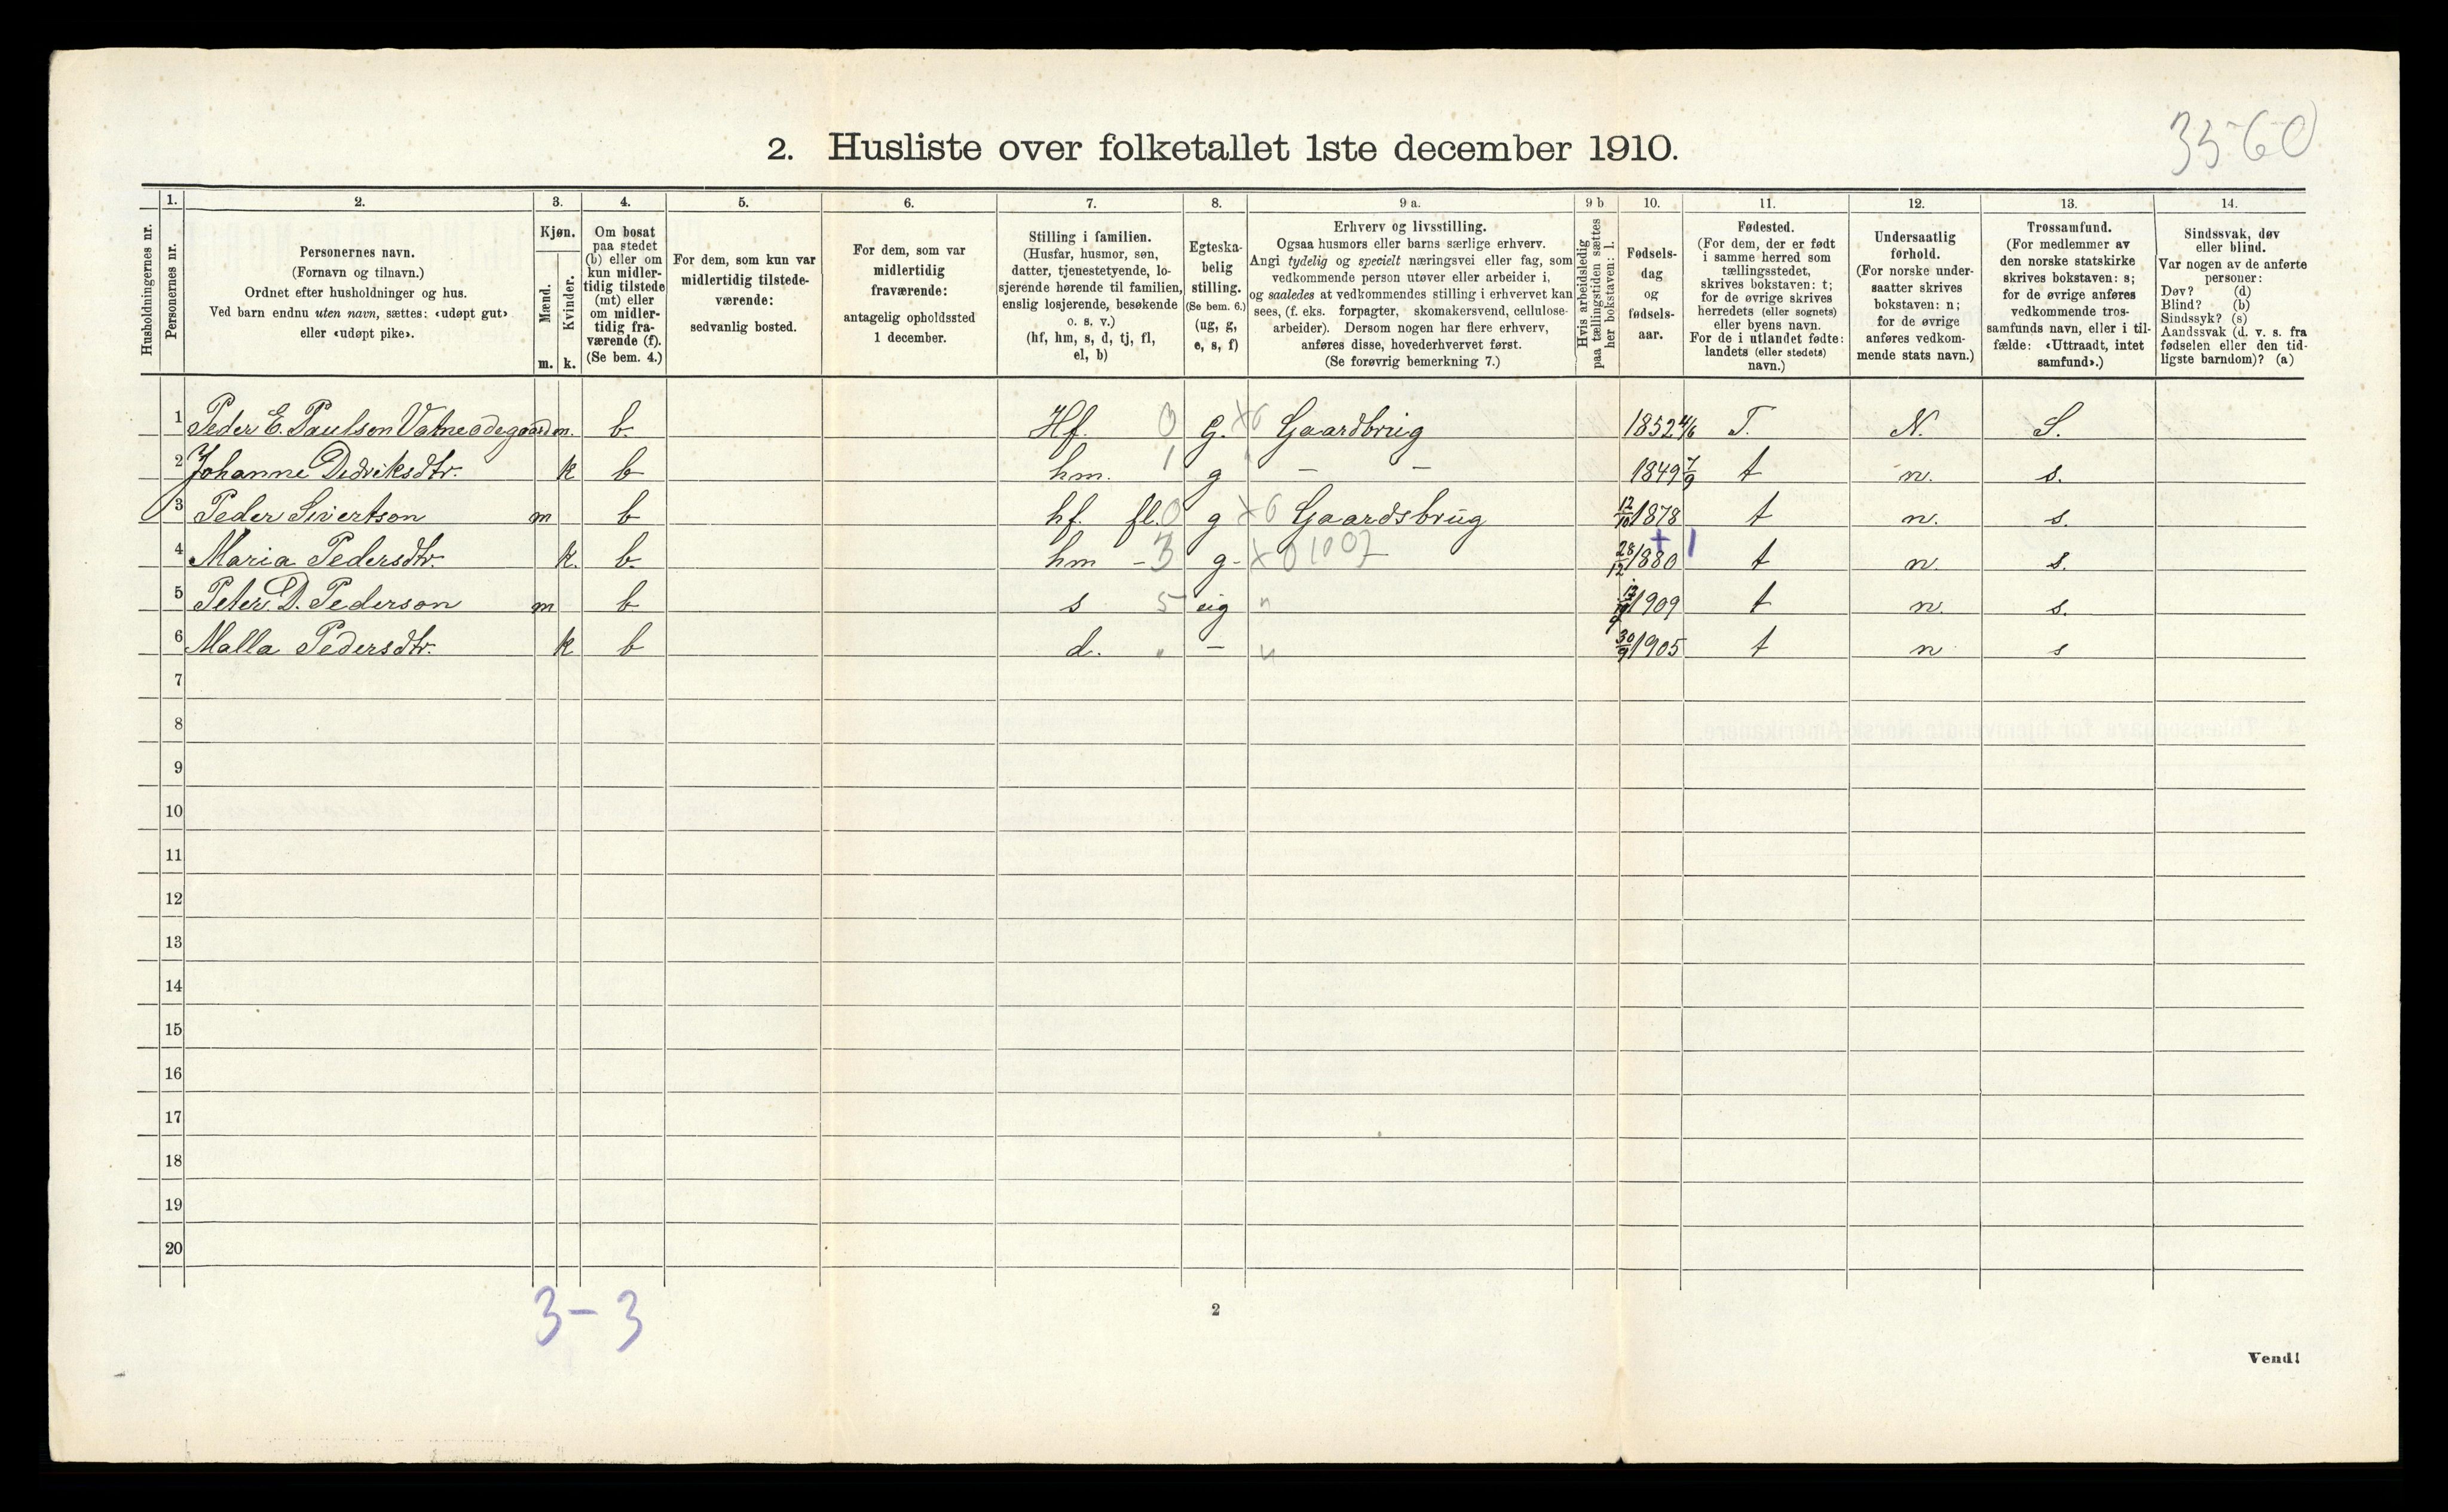 35-60
2. Husliste over folketallet 1ste december 1910.
Husholdningernes nr.
1.
Personernes nr.
2.
Personernes navn.
(Fornavn og tilnavn.)
Ordnet efter husholdninger og hus.
Ved barn endnu uten navn, sættes: «udøpt gut»
eller «udøpt pike».
3.
Kjøn.
Mænd.
Kvinder.
m. k.
4.
Om bosat
paa stedet
(b) eller om
kun midler-
tidig tilstede
(mt) eller
om midler-
tidig fra-
værende (f).
(Se bem. 4.)
5.
For dem, som kun var
midlertidig tilstede-
værende:
sedvanlig bosted.
6.
For dem, som var
midlertidig
fraværende:
antagelig opholdssted
1 december.
7.
Stilling i familien.
(Husfar, husmor, søn,
datter, tjenestetyende, lo-
sjerende hørende til familien,
enslig losjerende, besøkende
o. s. v.)
(hf, hm, s, d, tj, fl,
el, b)
8.
Egteska-
belig
stilling.
(Se bem. 6.)
(ug, g,
e, s, f)
9 a.
Erhverv og livsstilling.
Ogsaa husmors eller barns særlige erhverv.
Angi tydelig og specielt næringsvei eller fag, som
vedkommende person utøver eller arbeider i,
og saaledes at vedkommendes stilling i erhvervet kan
sees, (f. eks. forpagter, skomakersvend, cellulose-
arbeider). Dersom nogen har flere erhverv,
anføres disse, hovederhvervet først.
(Se forøvrig bemerkning 7.)
9 b
Hvis arbeidsledig
paa tællingstiden sættes
her bokstaven: l.
10.
Fødsels-
dag
og
fødsels-
aar.
11.
Fødested.
(For dem, der er født
i samme herred som
tællingsstedet,
skrives bokstaven: t;
for de øvrige skrives
herredets (eller sognets)
eller byens navn.
For de i utlandet fødte:
landets (eller stedets)
navn.)
12.
Undersaatlig
forhold.
(For norske under-
saatter skrives
bokstaven: n;
for de øvrige
anføres vedkom-
mende stats navn.)
13.
Trossamfund.
(For medlemmer av
den norske statskirke
skrives bokstaven: s;
for de øvrige anføres
vedkommende tros-
samfunds navn, eller i til-
fælde: «Uttraadt, intet
samfund».)
14.
Sindssvak, døv
eller blind.
Var nogen av de anførte
personer:
Døv? (d)
Blind? (b)
Sindssyk? (s)
Aandssvak (d. v. s. fra
fødselen eller den tid-
ligste barndom)? (a)
1 Peder E. Paulson Vatneødegaard m. b. Hf. 0 G. X6 Gaardbrug 1852 4/6 T. N. S.
2 Johanne Dedriksdtr. k b hm. 1 g — — 1849 7/9 t n. s.
3 Peder Sivertson m b hf. fl. 0 g X6 Gaardsbrug 12/10 1878 t n. s.
4 Maria Pedersdtr. k. b. hm - 3 g - X01007 28/12 1880 + 1 t n. s.
5 Peter D. Pederson m b s 5 uig " 1909 t n. s.
6 Malla Pedersdtr. k b d. " — " 30/9 1905 t n s
7
8
9
10
11
12
13
14
15
16
17
18
19
20
3 - 3
2
Vend!